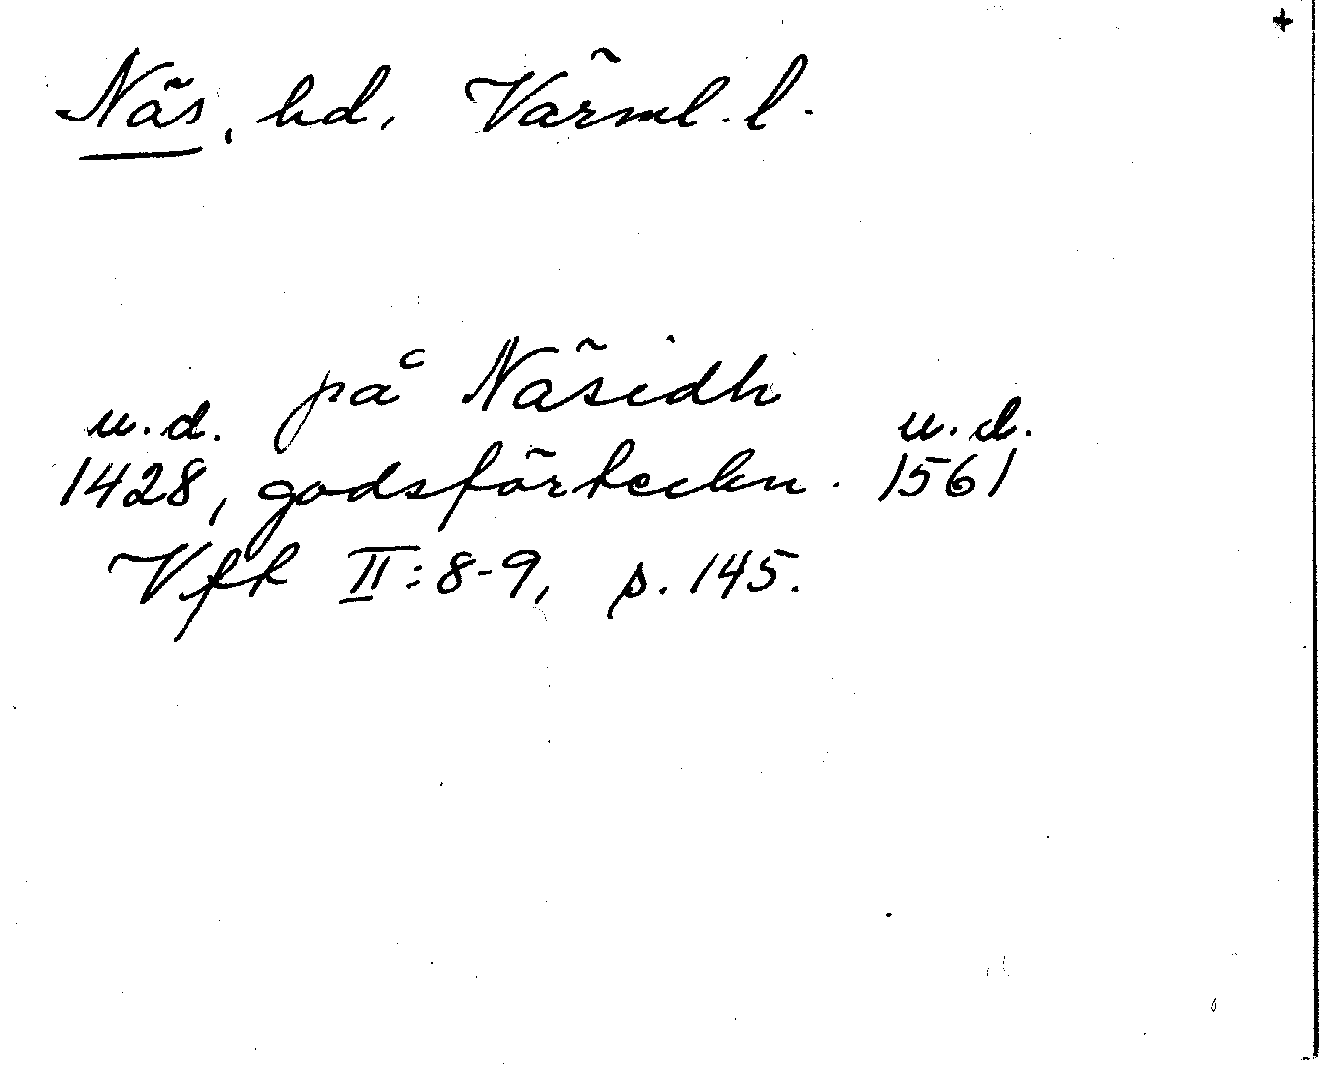 +
Näs, hd, Värml. l.
på Näsidh
u.d. u.d.
1428, godsförteckn. 1561
Vfk II:8-9, p. 145.